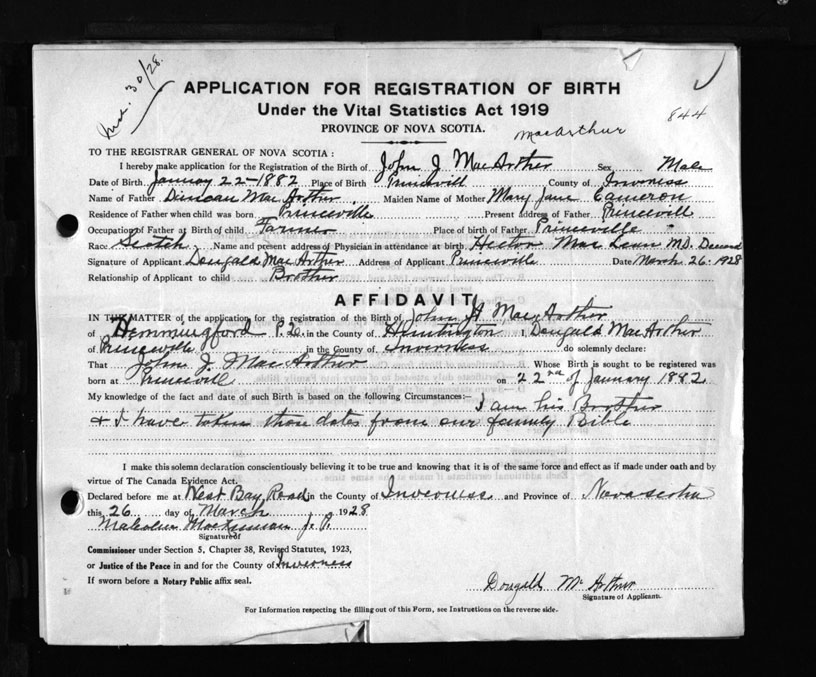 Mch. 30/28.
APPLICATION FOR REGISTRATION OF BIRTH
Under the Vital Statistics Act 1919
PROVINCE OF NOVA SCOTIA.
MacArthur
844
TO THE REGISTRAR GENERAL OF NOVA SCOTIA :
I hereby make application for the Registration of the Birth of John J MacArther Sex Male
Date of Birth January 22-1882 Place of Birth Princevill County of Inverness
Name of Father Duncan Mac Arther Maiden Name of Mother Mary Jane Cameron
Residence of Father when child was born Princeville Present address of Father Princevill
Occupation of Father at Birth of child Farmer Place of birth of Father Princeville
Race Scotch Name and present address of Physician in attendance at birth Hector Mac Lean MD. Deceased
Signature of Applicant Dougald Mac Arther Address of Applicant Princeville Date March 26 1928
Relationship of Applicant to child Brother
AFFIDAVIT
IN THE MATTER of the application for the registration of the Birth of John Mac Arther
of Hemmingford P.Q. in the County of Huntington I, Dougald Mac Arther
of Princeville in the County of Inverness do solemnly declare:
That John J. Mac Arther Whose Birth is sought to be registered was
born at Princevill on 22nd of January 1882
My knowledge of the fact and date of such Birth is based on the following Circumstances:— I am his Brother
& I have taken those dates from our family Bible
I make this solemn declaration conscientiously believing it to be true and knowing that it is of the same force and effect as if made under oath and by
virtue of The Canada Evidence Act.
Declared before me at West Bay Road in the County of Inverness and Province of Nova Scotia
this 26 day of March 1928
Malcolm J. P.
Signature of
Commissioner under Section 5, Chapter 38, Revised Statutes, 1923,
or Justice of the Peace in and for the County of Inverness
If sworn before a Notary Public affix seal.
Dougald Mc Arther
Signature of Applicant.
For Information respecting the filling out of this Form, see Instructions on the reverse side.